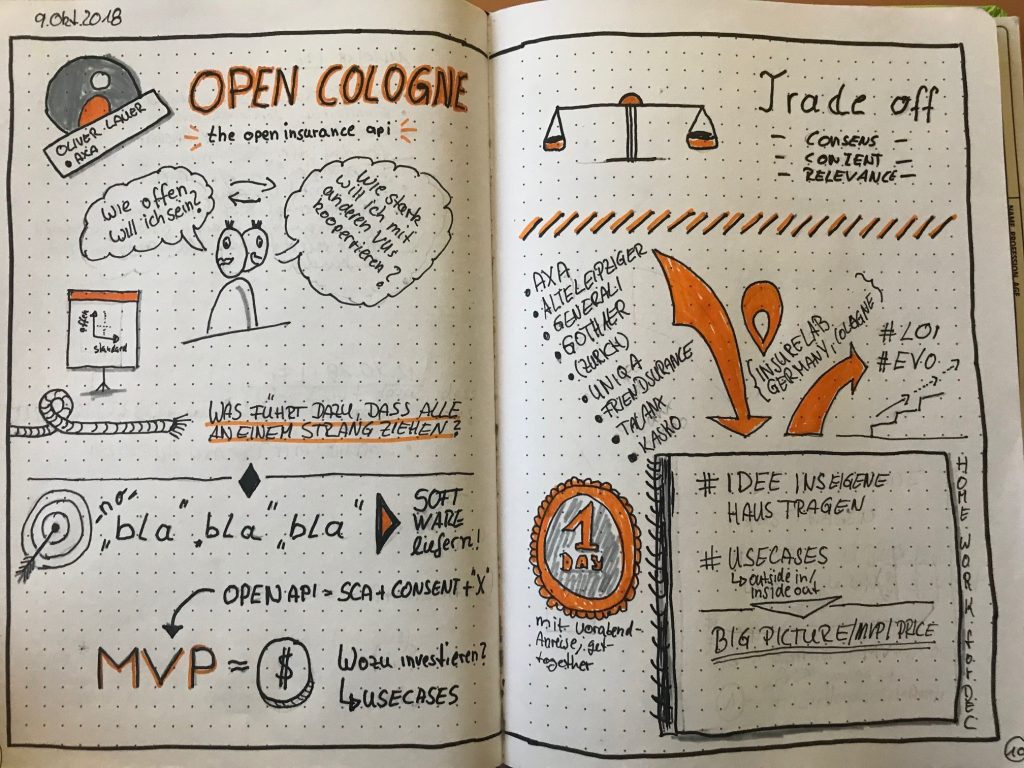 9.Okt.2018
OLIVER LAUER
• AXA
OPEN COLOGNE
the open insurance api
Wie offen
will ich sein?
Wie stark
will ich mit
anderen VUs
kooperieren?
offen
standard
WAS FÜHRT DAZU, DASS ALLE
AN EINEM STRANG ZIEHEN?
-no-
"bla" "bla" "bla"
SOFT
WARE
liefern!
OPEN API = SCA + CONSENT + "X"
MVP ≈ $
Wozu investieren?
↳ USECASES
Trade off
— CONSENS —
— CONTENT —
— RELEVANCE —
• AXA
• ALTE LEIPZIGER
• GENERALI
• GOTHAER
• (ZURICH)
• UNIQA
• FRIENDSURANCE
• TALANX
• KASKO
{INSURELAB
GERMANY, COLOGNE}
#LOI
#EVO
1
DAY
mit Vorabend-
Anreise, get-
together
# IDEE INS EIGENE
HAUS TRAGEN
# USECASES
↳ outside in/
inside out
BIG PICTURE/MVP/PRICE
HOMEWORK for DEC
10
NAME PROFESSION AGE